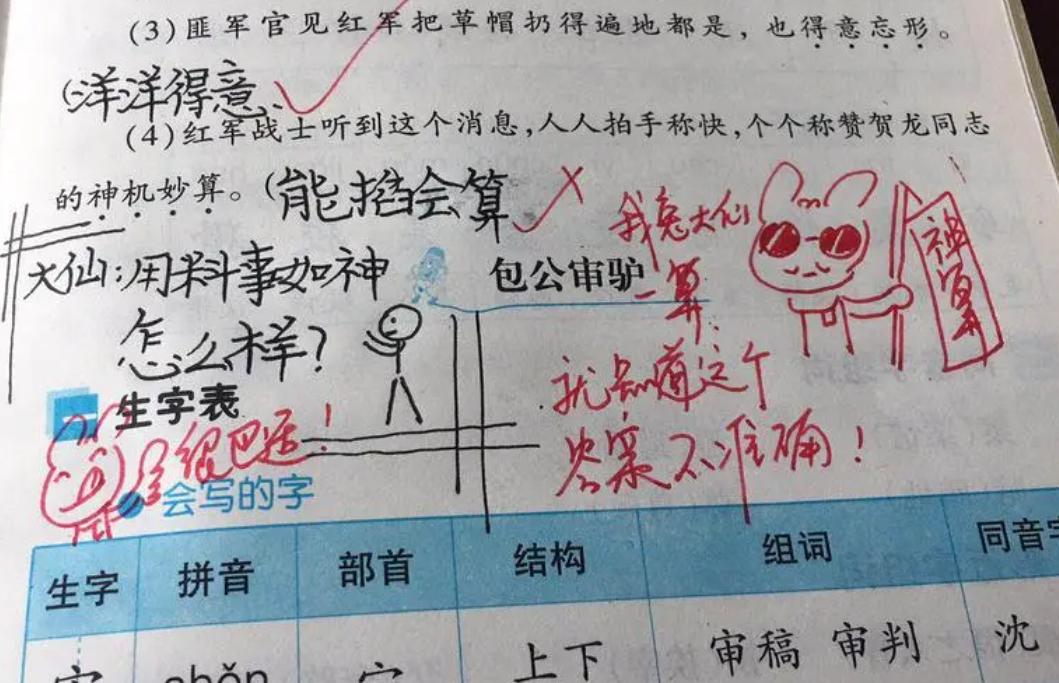 (3)匪军官见红军把草帽扔得遍地都是，也得意忘形。
(洋洋得意
(4)红军战士听到这个消息，人人拍手称快，个个称赞贺龙同志
的神机妙算。(能掐会算
我兔大仙
一算
就知道这个
答案不准确！
神算
大仙：用料事如神
怎么样？
包公审驴
生字表
很巴适！
会写的字
生字 拼音 部首 结构 组词 同音字
shěn 上下 审稿 审判 沈